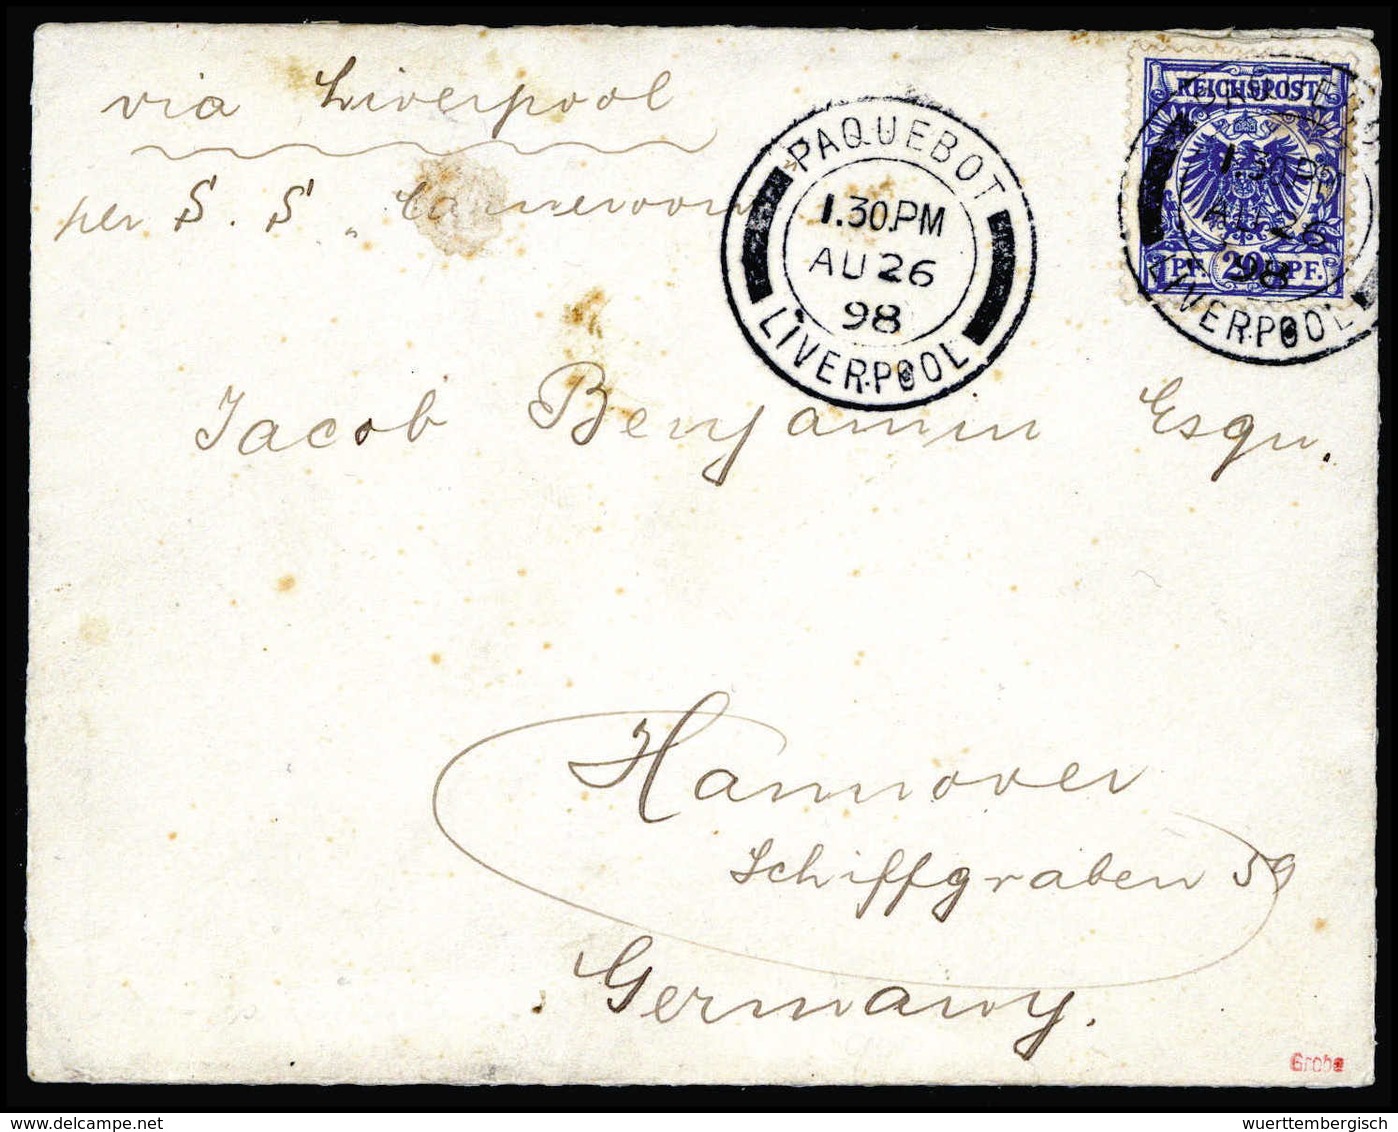 via Liverpool
per S. S. „Cameroon"
PAQUEBOT
1.30.PM
AU 26
98
LIVERPOOL
REICHSPOST
1.30PM
AU 26
98
PF. 20 PF.
LIVERPOOL
Jacob Benjamin Esqu.
Hannover
Schiffgraben 59
Germany.
Grobe
wuerttembergisch